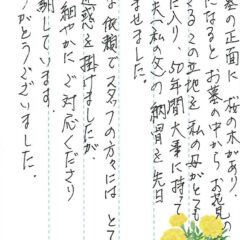 墓の正面に桜の木があり、
になるとお墓の中からお花見の
きるこの立地を私の母がとても
に入り、50年間大事に持て
夫(私の父)の納骨を先日
ませました。
な依頼でスタッフの方々にはとて
迷惑を掛けましたが、
細やかにご対応くださり
謝しています。
がとうございました。